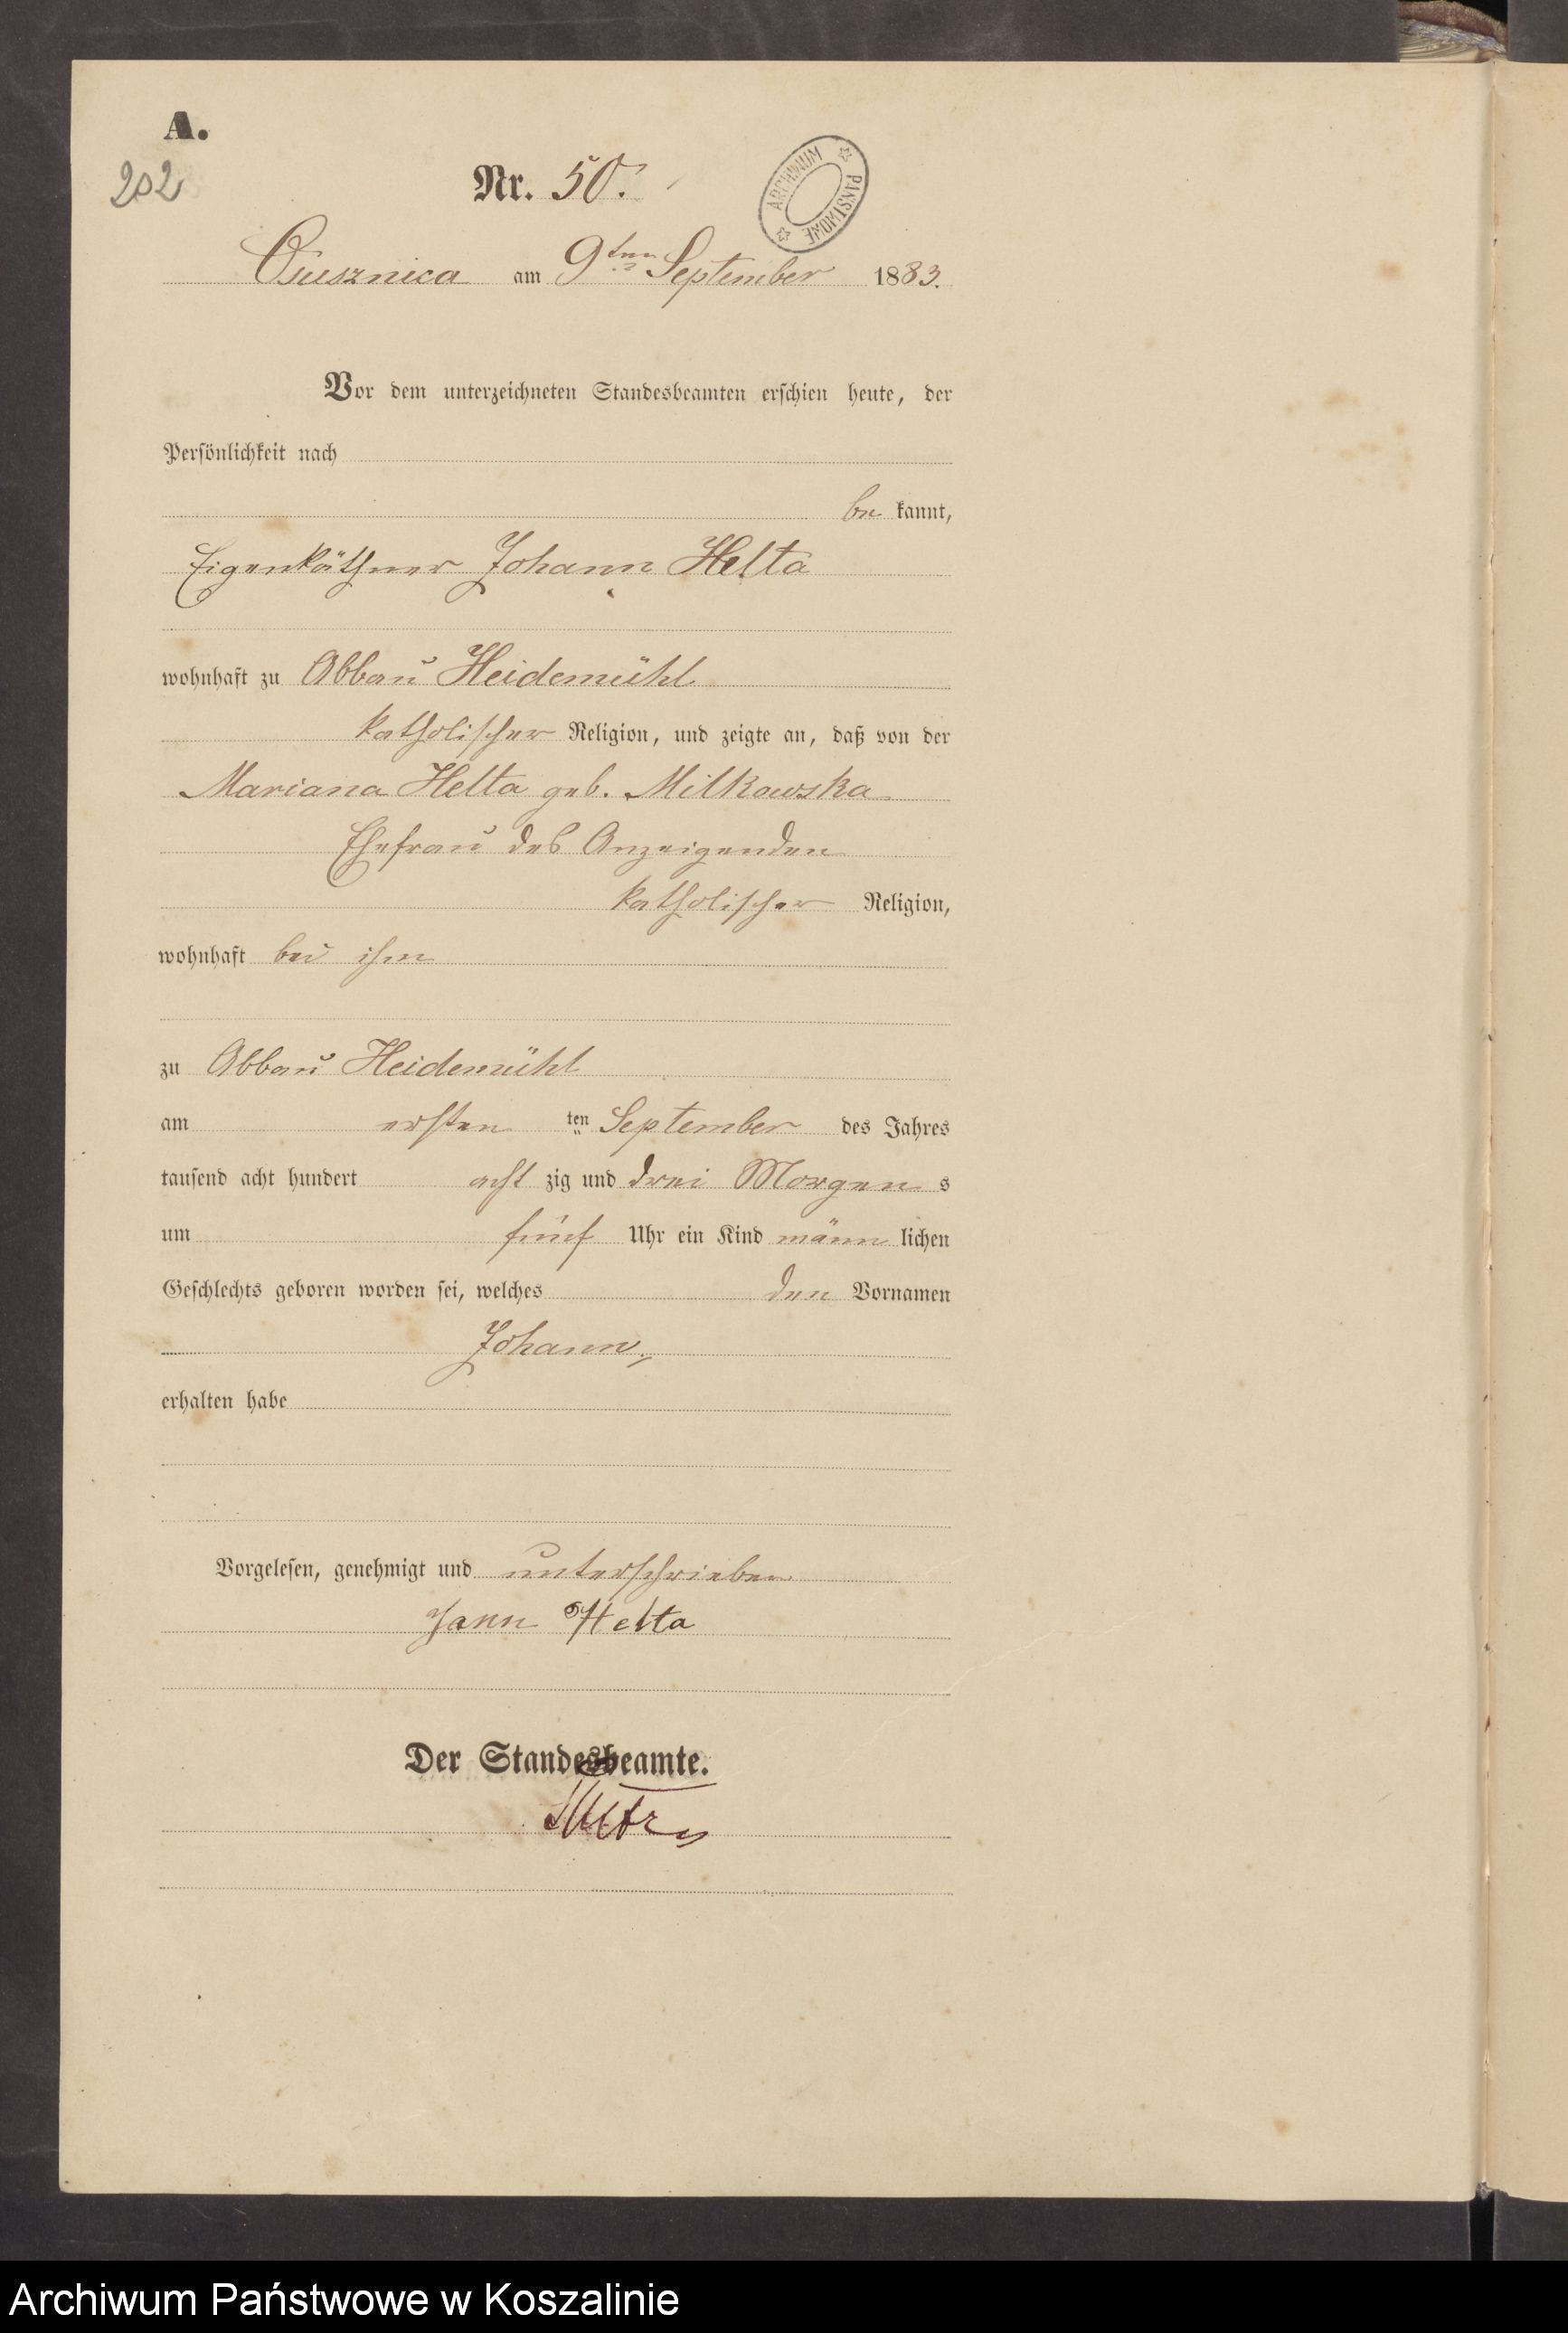 A.
202
Nr. 50.
ARCHIWUM PAŃSTWOWE
Ossusznica am 9ten September 1883.
Vor dem unterzeichneten Standesbeamten erschien heute, der
Persönlichkeit nach
be kannt,
Eigenkäthner Johann Helta
wohnhaft zu Abbau Heidemühl
katholischer Religion, und zeigte an, daß von der
Mariana Helta geb. Milkowska
Ehefrau des Anzeigenden
katholischer Religion,
wohnhaft bei ihm
zu Abbau Heidemühl
am ersten ten September des Jahres
tausend acht hundert acht zig und drei Morgen s
um fünf Uhr ein Kind männ lichen
Geschlechts geboren worden sei, welches den Vornamen
Johann,
erhalten habe
Vorgelesen, genehmigt und unterschrieben
Jann Helta
Der Standesbeamte.
Archiwum Państwowe w Koszalinie